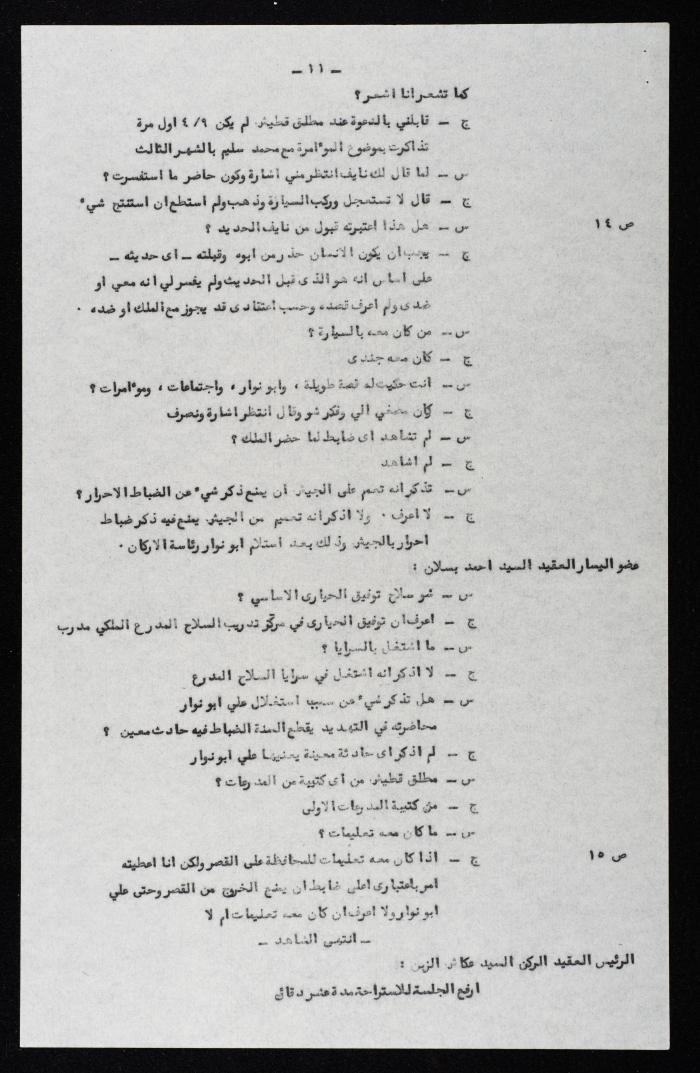 - ١١ -
كما تشعر انا اشعر؟
ج - قابلني بالدعوة عند مطلق قطيش. لم يكن ٤/٩ اول مرة
تذاكرت بموضوع المؤامرة مع محمد سليم بالشهر الثالث
س - لما قال لك نايف انتظر مني اشارة وكون حاضر ما استفسرت؟
ج - قال لا تستعجل وركب السيارة وذهب ولم استطع ان استنتج شيء
ص ١٤
س - هل هذا اعتبرته قبول من نايف الحديد ؟
ج - يجب ان يكون الانسان حذر من ابوه وقبلته - اى حديثه -
على اساس انه هو الذى قبل الحديث ولم يفسر لي انه معي او
ضدى ولم اعرف قصده وحسب اعتقادى قد يجوز مع الملك او ضده .
س - من كان معه بالسيارة؟
ج - كان معه جندى
س - انت حكيت له قصة طويلة ، وابو نوار ، واجتماعات ، ومؤامرات ؟
ج - كان مصغي الي وفكر شو وقال انتظر اشارة ونصرف
س - لم تشاهد اى ضابط لما حضر الملك ؟
ج - لم اشاهد
س - تذكر انه تعمم على الجيش ان يمنع ذكر شيء عن الضباط الاحرار ؟
ج - لا اعرف . ولا اذكر انه تعميم من الجيش يمنع فيه ذكر ضباط
احرار بالجيش وذلك بعد استلام ابو نوار رئاسة الاركان .
عضو اليسار العقيد السيد احمد بسلان :
س - شو سلاح توفيق الحيارى الاساسي ؟
ج - اعرف ان توفيق الحيارى في مركز تدريب السلاح المدرع الملكي مدرب
س - ما اشتغل بالسرايا ؟
ج - لا اذكر انه اشتغل في سرايا السلاح المدرع
س - هل تذكر شيء عن سبب استغلال علي ابو نوار
محاضرته في التهديد يقطع السنة الضباط فيه حادث معين ؟
ج - لم اذكر اى حادثة معينة يعنيها علي ابو نوار
س - مطلق قطيش من اى كتيبة من المدرعات ؟
ج - من كتيبة المدرعات الاولى
س - ما كان معه تعليمات ؟
ص ١٥
ج - اذا كان معه تعليمات للمحافظة على القصر ولكن انا اعطيته
امر باعتبارى اعلى ضابط ان يمنع الخروج من القصر وحتى علي
ابو نوار ولا اعرف ان كان معه تعليمات ام لا
- انتهى الشاهد -
الرئيس العقيد الركن السيد عكاش الزبن :
ارفع الجلسة للاستراحة مدة عشر دقائق